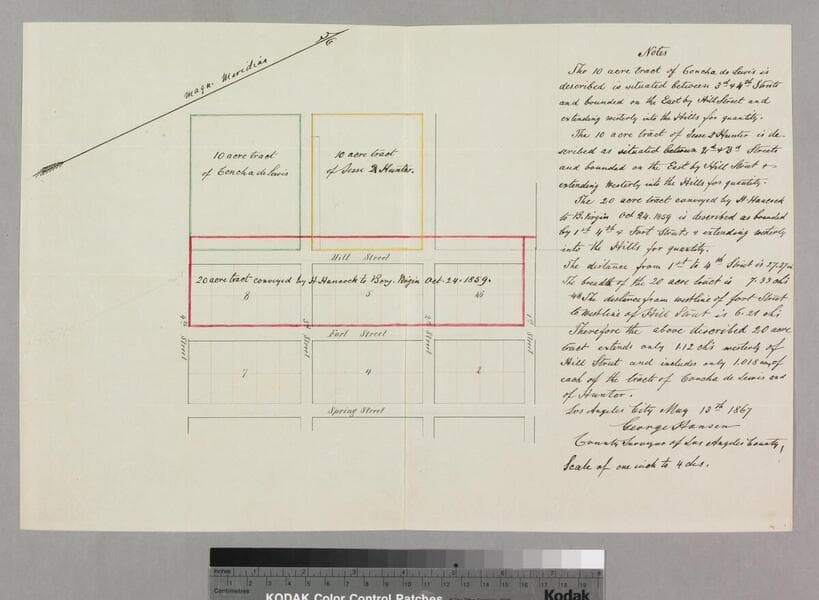 Magn. Meridian
10 acre tract
of Concha de Lewis
10 acre tract
of Jesse D Hunter.
Hill Street
20 acre tract conveyed by H. Hancock to Benj. Virgin Oct. 24. 1859.
8
5
4th Street
3d Street
2d Street
1st Street
Fort Street
7
4
2
Spring Street
Notes
The 10 acre tract of Concha de Lewis is
described is situated between 3d & 4th Streets
and bounded on the East by Hill Street and
extending westerly into the Hills for quantity.
The 10 acre tract of Jesse D Hunter is de-
scribed as situated between 2d & 3d Streets
and bounded on the East by Hill Street &
extending Westerly into the Hills for quantity.
The 20 acre tract conveyed by H. Hancock
to B. Virgin Oct 24. 1859 is described as bounded
by 1st 4th & Fort Streets & extending westerly
into the Hills for quantity.
The distance from 1st to 4th Street is 27.27
The breadth of the 20 acre tract is 7.33 ch's
The distance from westline of Fort Street
to westline of Hill Street is 6.21 ch's
Therefore the above described 20 acre
tract extends only 1.12 ch's westerly of
Hill Street and includes only 1.018 of
each of the tracts of Concha de Lewis and
of Hunter.
Los Angeles City May 13th 1867
George Hansen
County Surveyor of Los Angeles County,
Scale of one inch to 4 chs.
Inches 1 2 3 4 5 6 7 8
Centimetres 1 2 3 4 5 6 7 8 9 10 11 12 13 14 15 16 17 18 19
KODAK Color Control Patches
Kodak